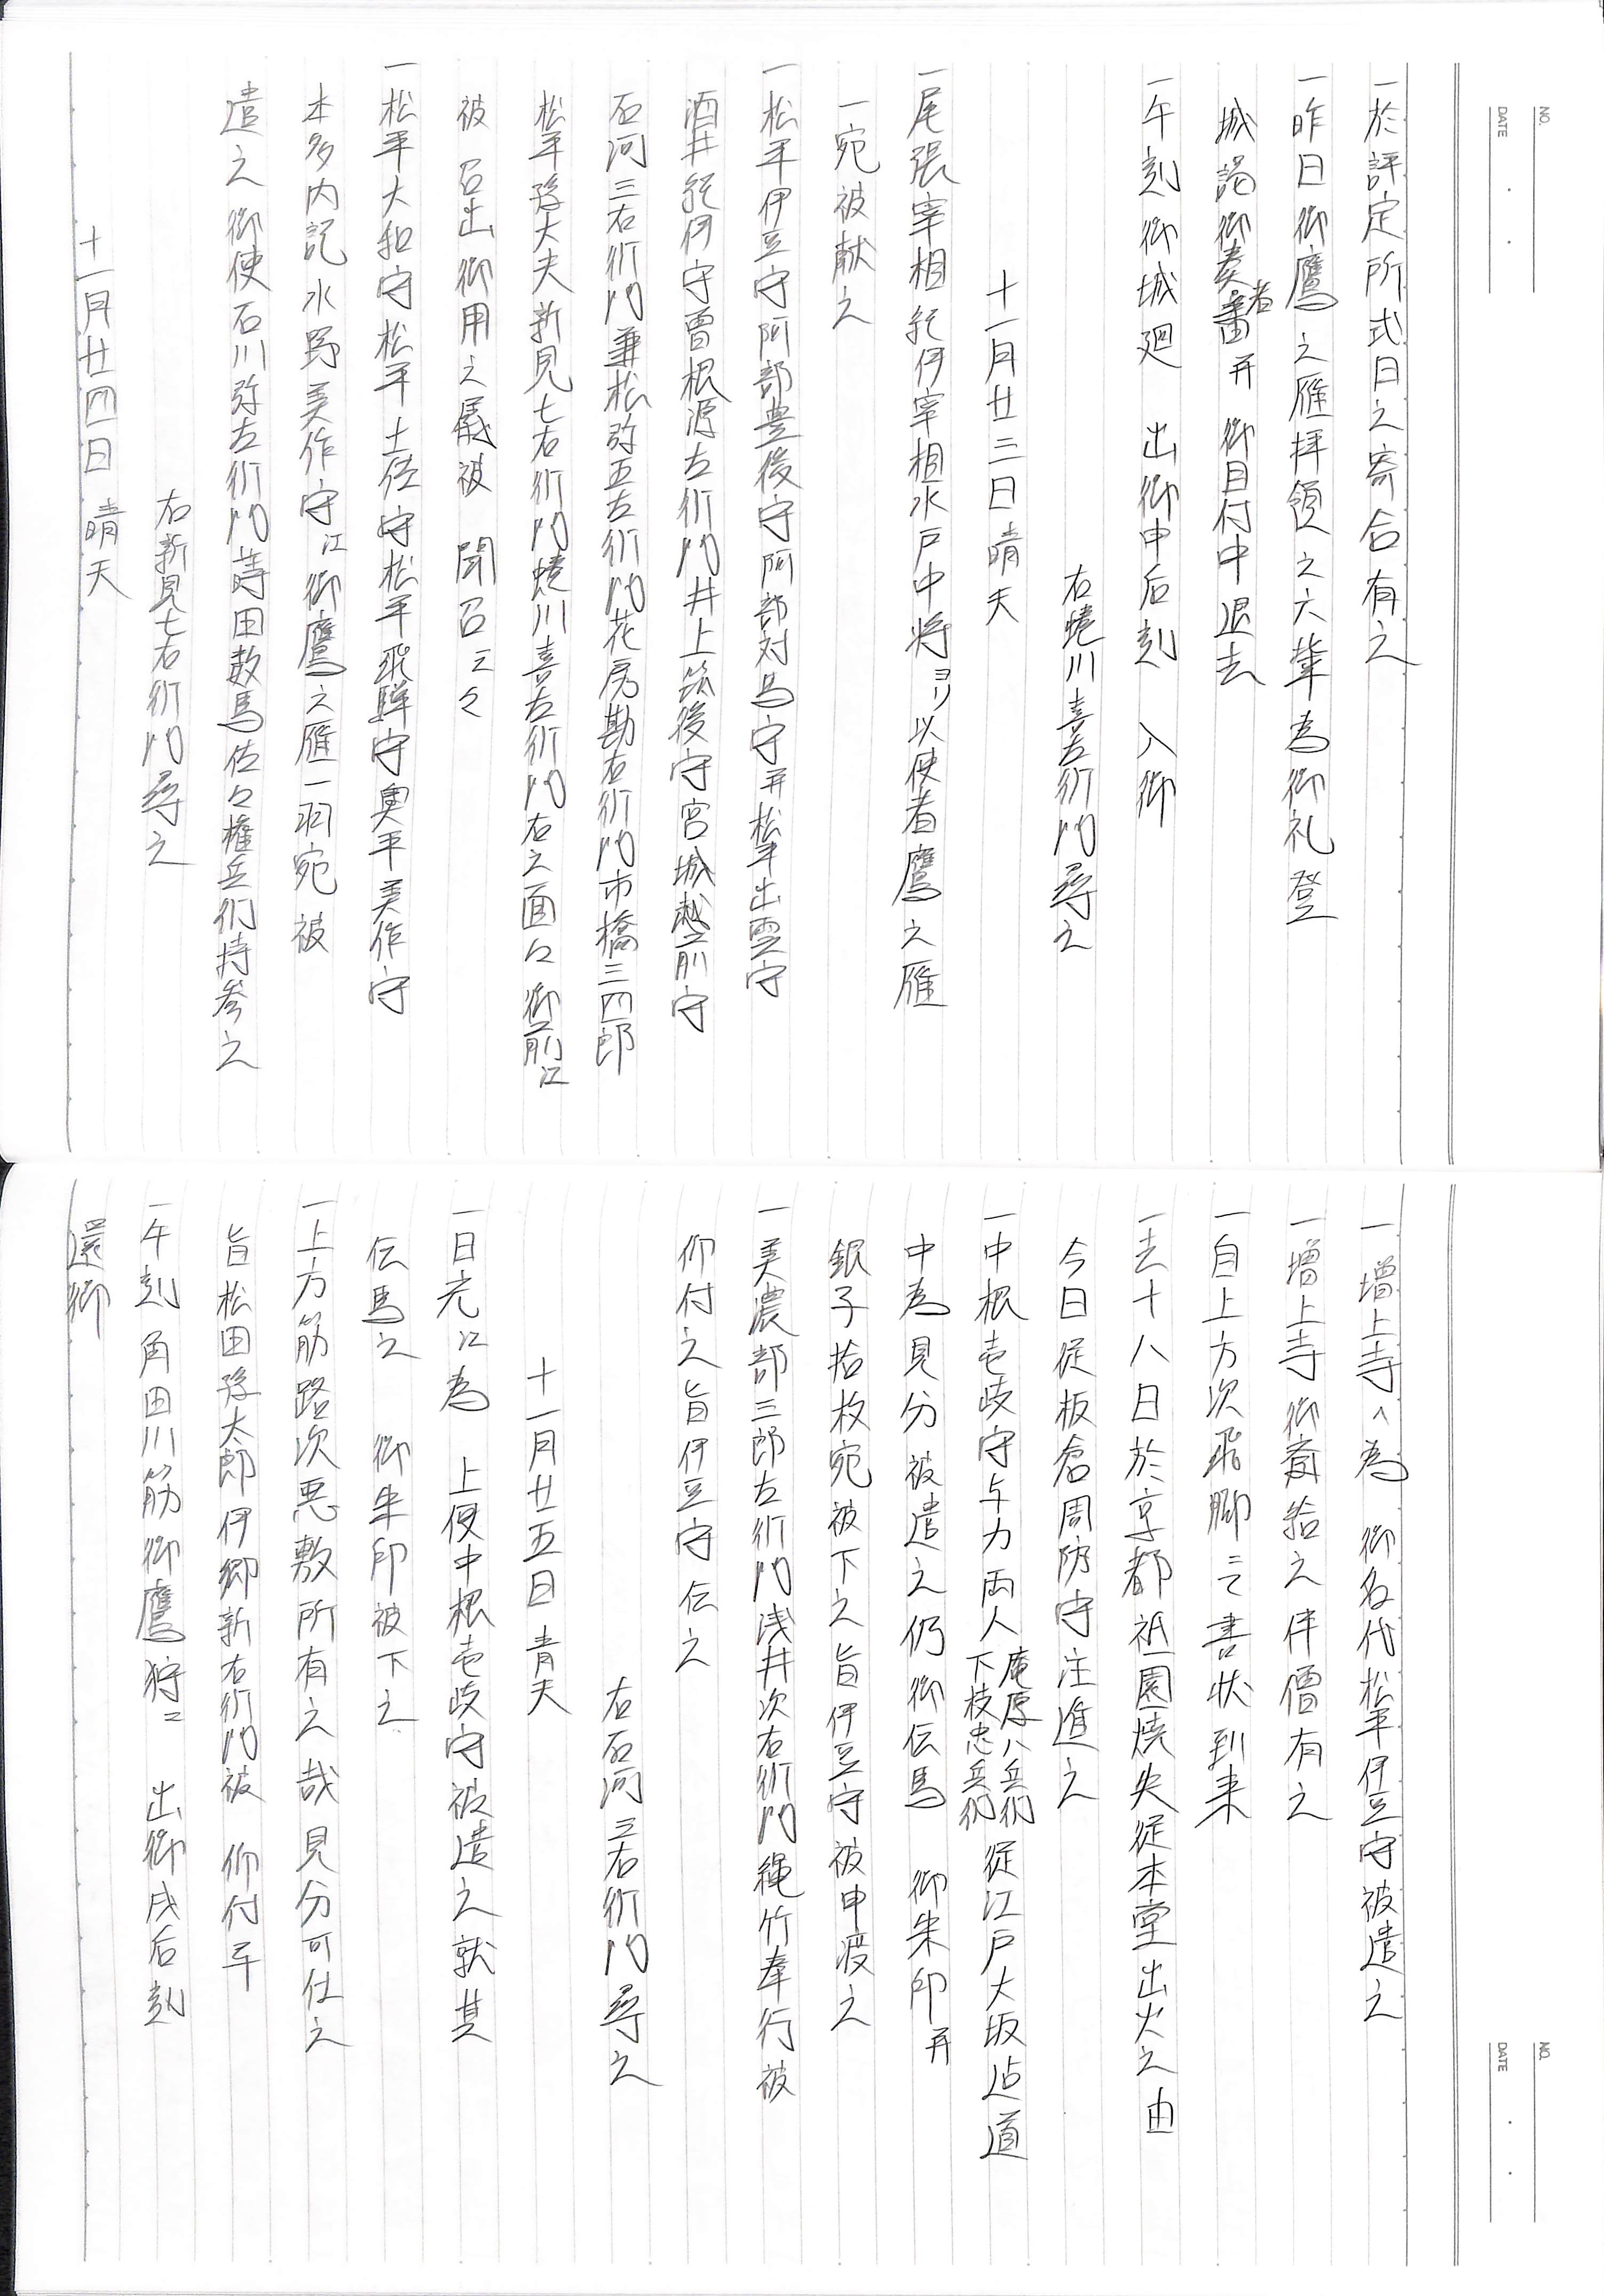 NO.
DATE
一於評定所式日之寄合有之
一昨日御鷹之雁拝領之六輩為御礼登
城謁御奏者番并御目付中退去
一午刻御城廻 出御申后刻 入御
右蜷川喜左衛門尋之
十一月廿三日晴天
一尾張宰相紀伊宰相水戸中将ヨリ以使者鷹之雁
一宛被献之
一松平伊豆守阿部豊後守阿部対馬守并松平出雲守
酒井紀伊守曽根源左衛門井上筑後守宮城越前守
石河三右衛門兼松弥五左衛門花房勘右衛門市橋三四郎
松平孫大夫新見七右衛門蜷川喜左衛門右之面々御前江
被召出御用之儀被 聞召云々
一松平大和守松平土佐守松平飛騨守奥平美作守
本多内記水野美作守江御鷹之雁一羽宛被
遣之御使石川弥左衛門蒔田数馬佐々権兵衛持参之
右新見七右衛門尋之
十一月廿四日晴天
NO.
DATE
一増上寺へ為 御名代松平伊豆守被遣之
一増上寺御斎給之伴僧有之
一自上方次飛脚ニて書状到来
一去十八日於京都祇園焼失従本堂出火之由
今日従板倉周防守注進之
一中根壱岐守与力両人庵原八兵衛下枝忠兵衛従江戸大坂迠道
中為見分被遣之仍御伝馬 御朱印并
銀子拾枚宛被下之旨伊豆守被申渡之
一美濃部三郎左衛門浅井次右衛門縄竹奉行被
仰付之旨伊豆守伝之
右石河三右衛門尋之
十一月廿五日青天
一日光江為 上使中根壱岐守被遣之就其
伝馬之 御朱印被下之
一上方筋路次悪敷所有之哉見分可仕之
旨松田孫太郎伊郷新右衛門被 仰付平
一午刻角田川筋御鷹狩ニ 出御戌后刻
還御